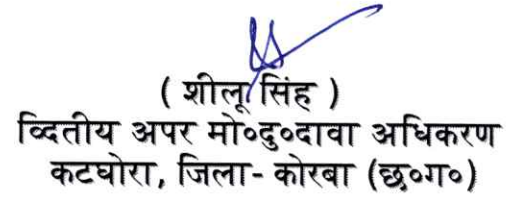 ( शीलू सिंह )
व्दितीय अपर मो०दु०दावा अधिकरण
कटघोरा, जिला- कोरबा (छ०ग०)